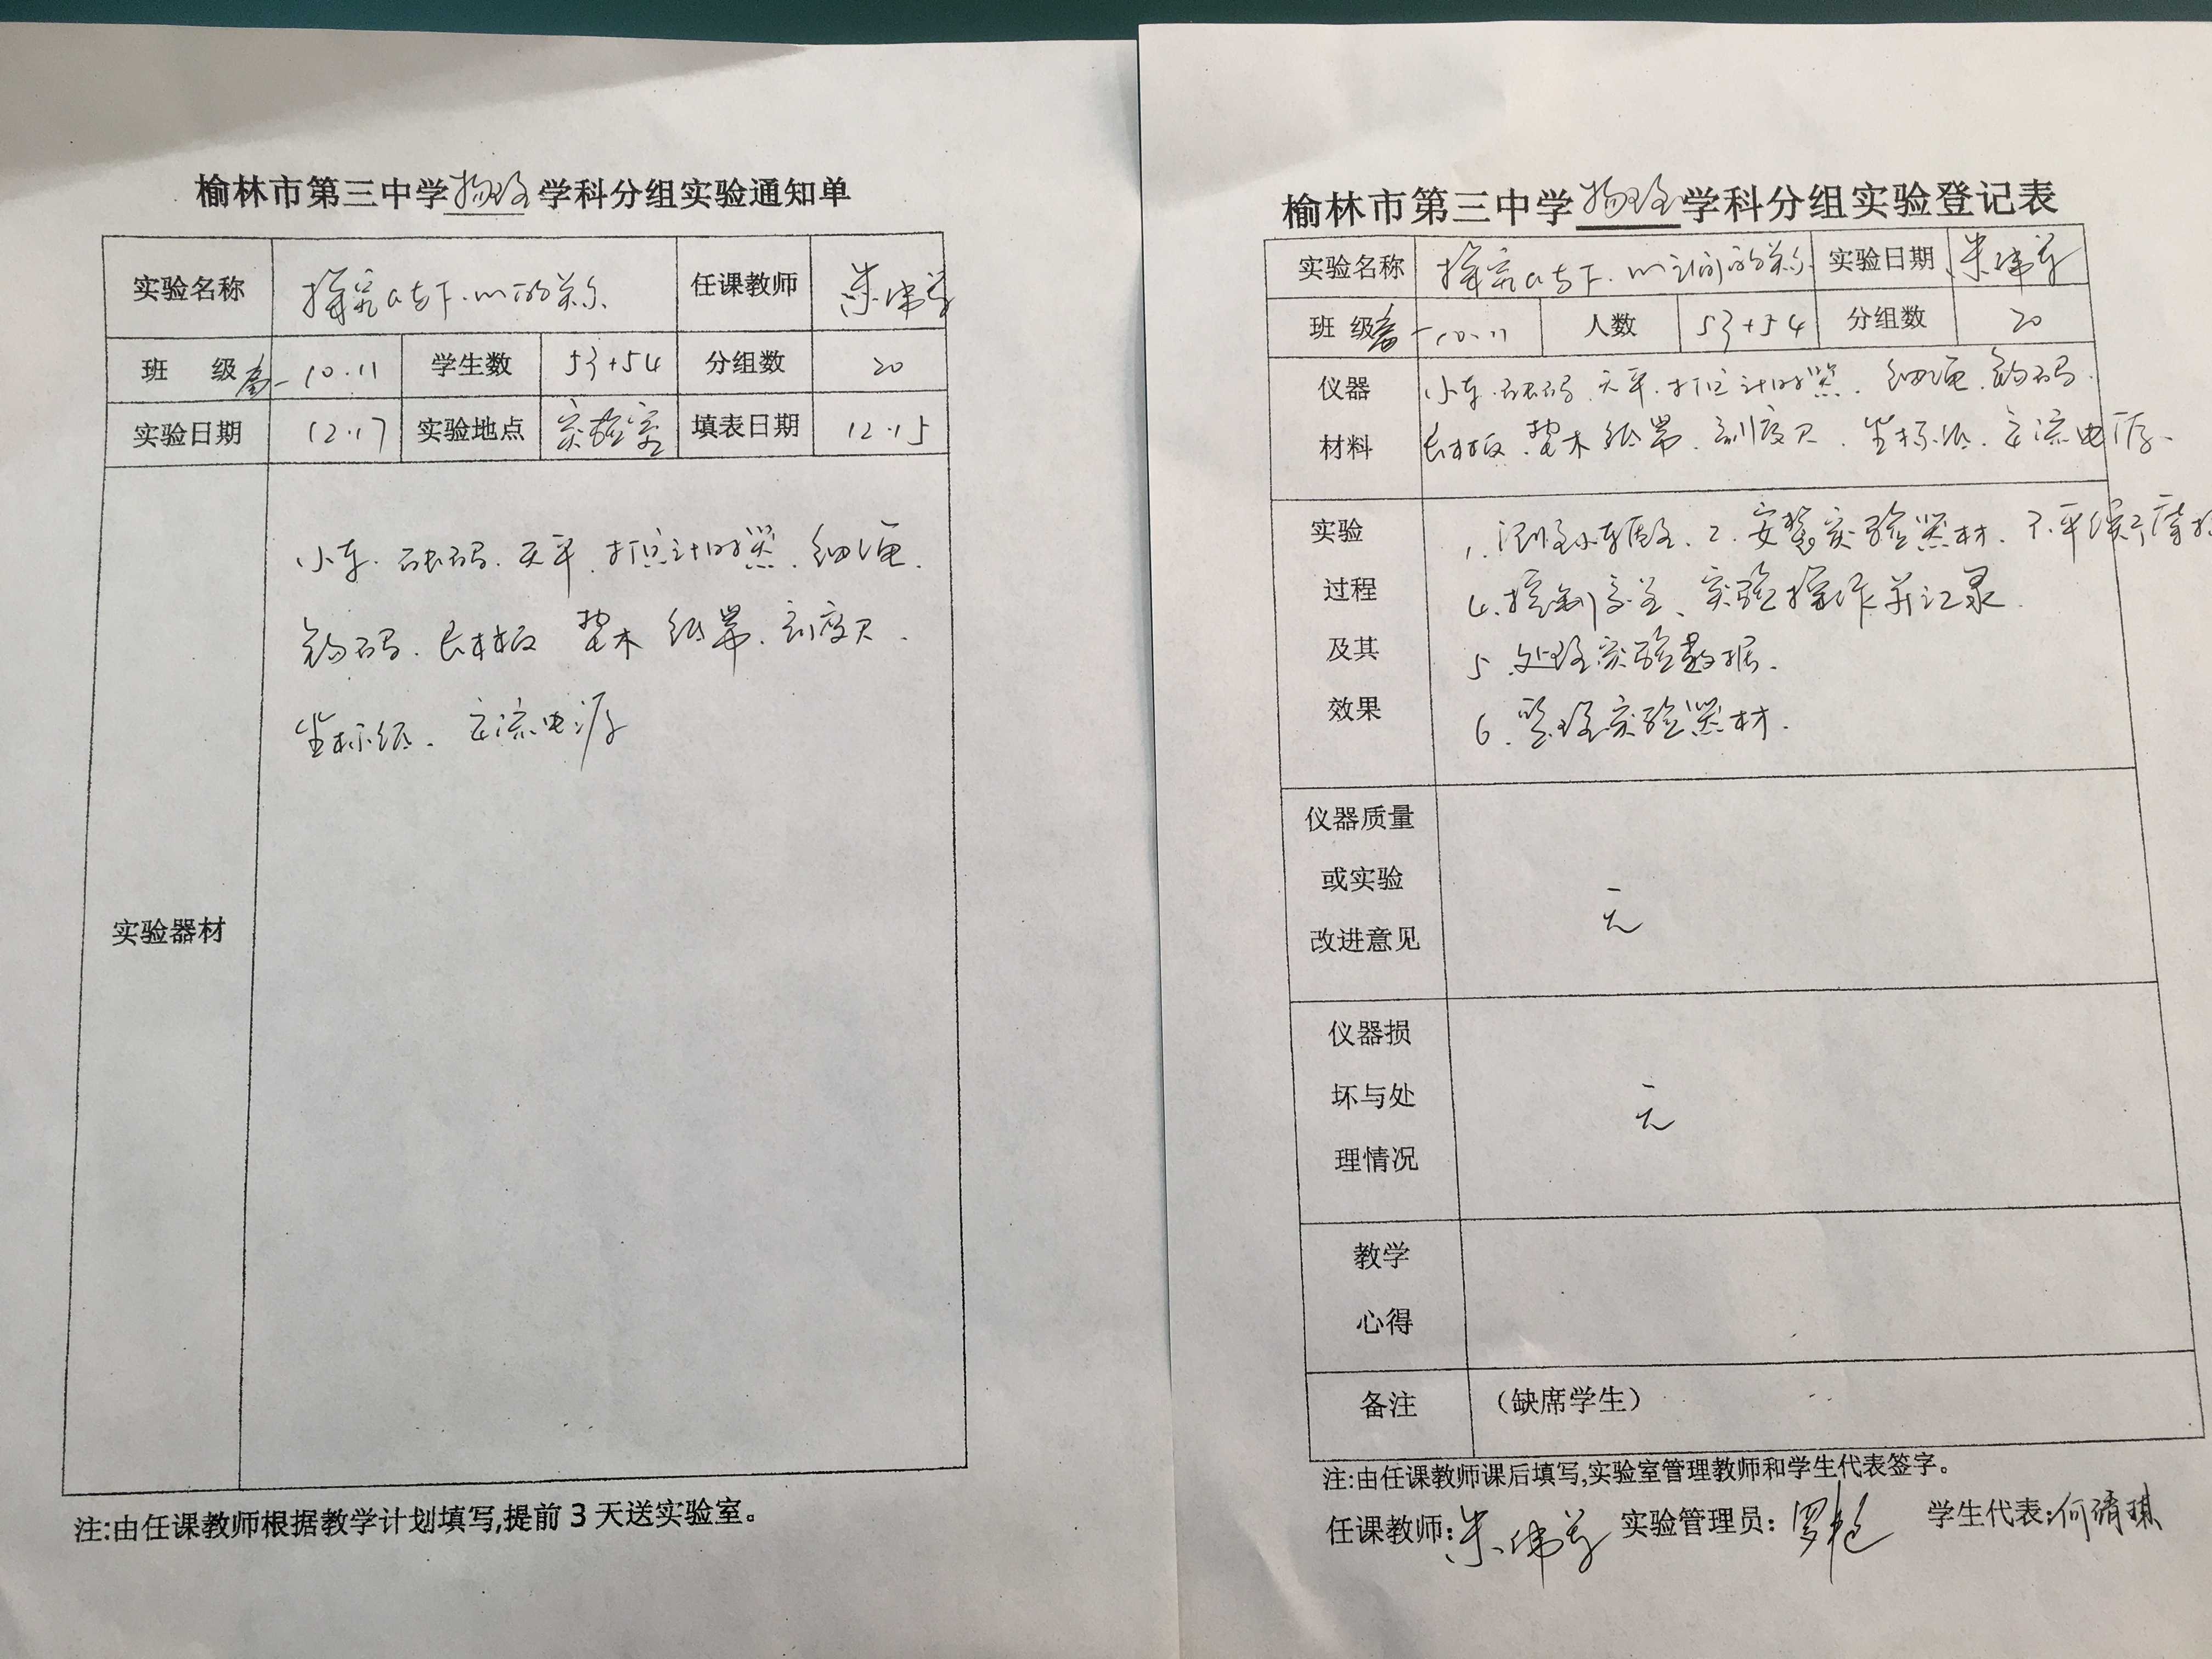 榆林市第三中学物理学科分组实验通知单
实验名称 探究a与F.m的关系 任课教师 朱伟
班 级 高一10.11 学生数 53+54 分组数 20
实验日期 12.17 实验地点 实验室 填表日期 12.15
实验器材
小车.砝码.天平.打点计时器.细绳.
钩码.长木板 垫木 纸带.刻度尺.
坐标纸.交流电源
注:由任课教师根据教学计划填写,提前3天送实验室。
榆林市第三中学物理学科分组实验登记表
实验名称 探究a与F.m之间的关系 实验日期 朱伟
班 级 高一10.11 人数 53+54 分组数 20
仪器
材料
小车.砝码.天平.打点计时器.细绳.钩码.
长木板.垫木 纸带.刻度尺.坐标纸.交流电源.
实验
过程
及其
效果
1.测量小车质量.2.安装实验器材.3.平衡摩擦
4.控制变量、实验操作并记录.
5.处理实验数据.
6.整理实验器材.
仪器质量
或实验
改进意见
无
仪器损
坏与处
理情况
无
教学
心得
备注 (缺席学生)
注:由任课教师课后填写,实验室管理教师和学生代表签字。
任课教师:朱伟 实验管理员:罗艳 学生代表:何靖琪